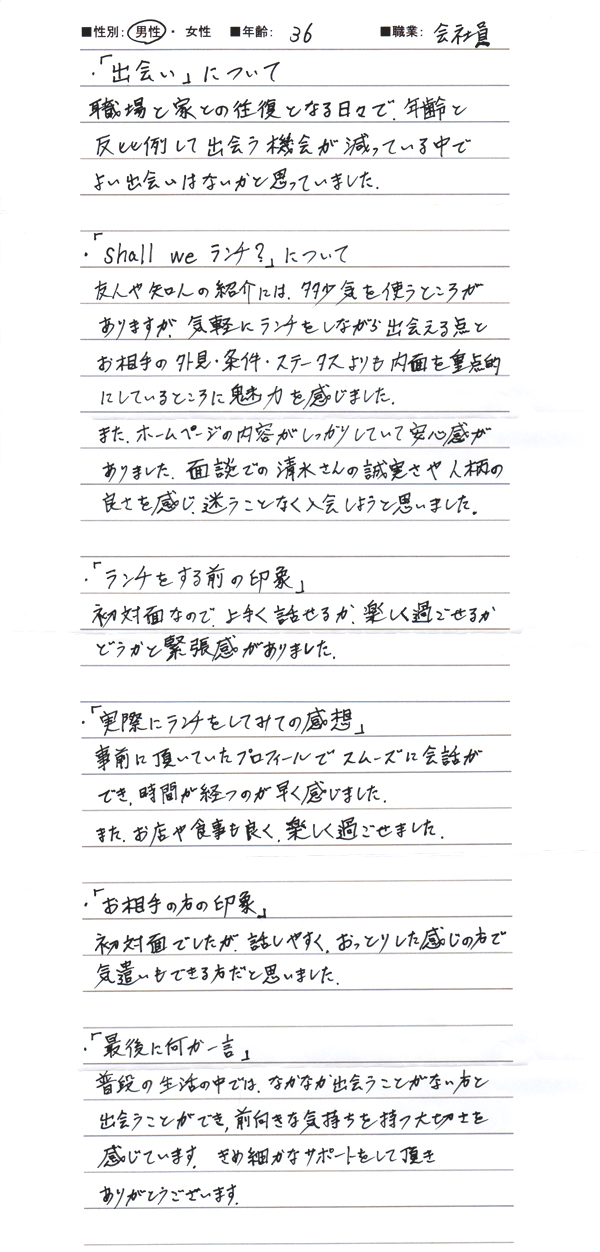 ■性別: 男性 ・ 女性 ■年齢: 36 ■職業: 会社員
・「出会い」について
職場と家との往復となる日々で、年齢と
反比例して出会う機会が減っている中で
よい出会いはないかと思っていました。
・「shall we ランチ?」について
友人や知人の紹介には、多少気を使うところが
ありますが、気軽にランチをしながら出会える点と
お相手の外見・条件・ステータスよりも内面を重点的
にしているところに魅力を感じました。
また、ホームページの内容がしっかりしていて安心感が
ありました。面談での清水さんの誠実さや人柄の
良さを感じ、迷うことなく入会しようと思いました。
・「ランチをする前の印象」
初対面なので、上手く話せるか、楽しく過ごせるか
どうかと緊張感がありました。
・「実際にランチをしてみての感想」
事前に頂いていたプロフィールでスムーズに会話が
でき、時間が経つのが早く感じました。
また、お店や食事も良く、楽しく過ごせました。
・「お相手の方の印象」
初対面でしたが、話しやすく、おっとりした感じの方で
気遣いもできる方だと思いました。
・「最後に何か一言」
普段の生活の中では、なかなか出会うことがない方と
出会うことができ、前向きな気持ちを持つ大切さを
感じています。きめ細かなサポートをして頂き
ありがとうございます。